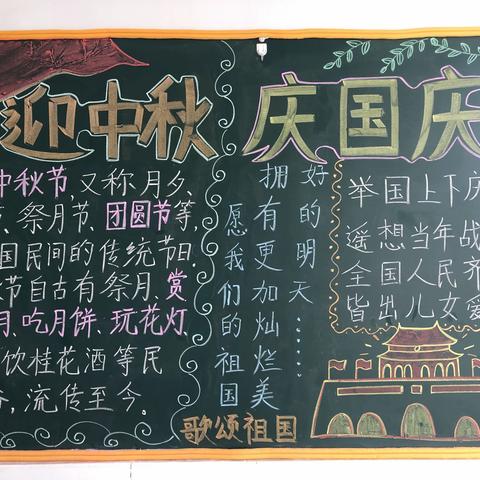 迎中秋 庆国庆
中秋节,又称月夕、
、祭月节、团圆节等,
国民间的传统节日.
节自古有祭月、赏
月、吃月饼、玩花灯、
饮桂花酒等民
,流传至今。
愿我们的祖国
拥有更加灿烂美
好的明天……
举国上下庆
遥想当年战
全国人民齐
皆出儿女爱
歌颂祖国